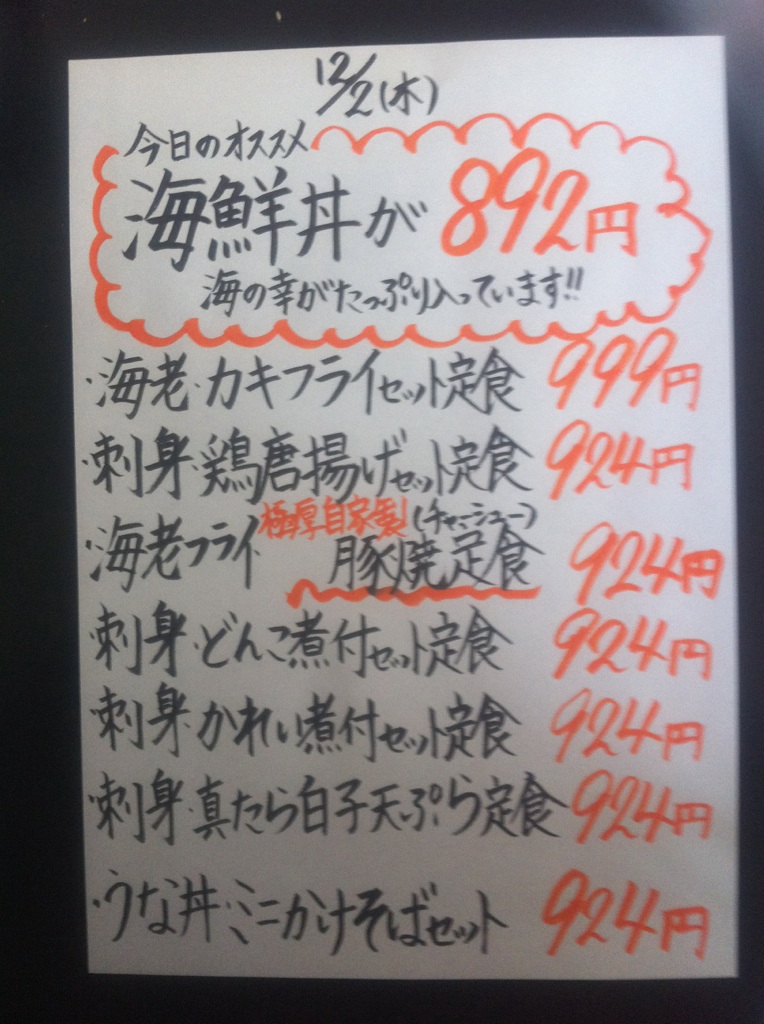 12/2(水)
今日のオススメ
海鮮丼が 892円
海の幸がたっぷり入っています!!
・海老・カキフライセット定食 999円
・刺身・鶏唐揚げセット定食 924円
極厚自家製(チャーシュー)
・海老フライ 豚焼定食 924円
・刺身・どんこ煮付セット定食 924円
・刺身・かれい煮付セット定食 924円
・刺身・真たら白子天ぷら定食 924円
・うな丼・ミニかけそばセット 924円